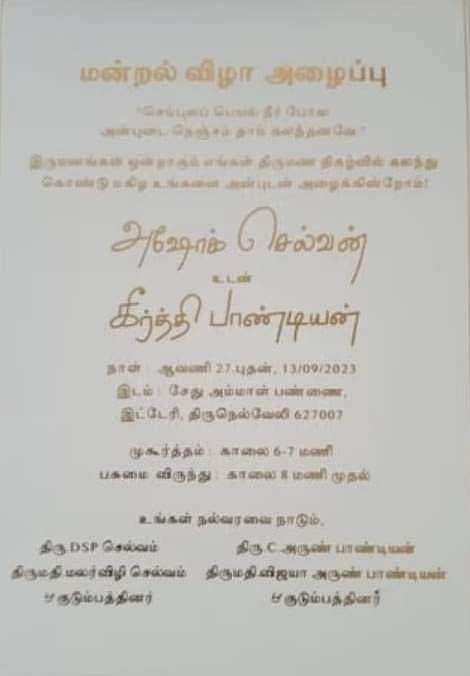 மன்றல் விழா அழைப்பு
"செம்புலப் பெயல் நீர் போல
அன்புடை நெஞ்சம் தாம் கலந்தனவே"
இருமனங்கள் ஒன்றாகும் எங்கள் திருமண நிகழ்வில் கலந்து
கொண்டு மகிழ உங்களை அன்புடன் அழைக்கின்றோம்!
அஷோக் செல்வன்
உடன்
கீர்த்தி பாண்டியன்
நாள் : ஆவணி 27.புதன், 13/09/2023
இடம் : சேது அம்மாள் பண்ணை,
இட்டேரி, திருநெல்வேலி 627007
முகூர்த்தம் : காலை 6-7 மணி
பசுமை விருந்து : காலை 8 மணி முதல்
உங்கள் நல்வரவை நாடும்,
திரு.DSP செல்வம் திரு.C.அருண் பாண்டியன்
திருமதி.மலர்விழி செல்வம் திருமதி.விஜயா அருண் பாண்டியன்
& குடும்பத்தினர் & குடும்பத்தினர்